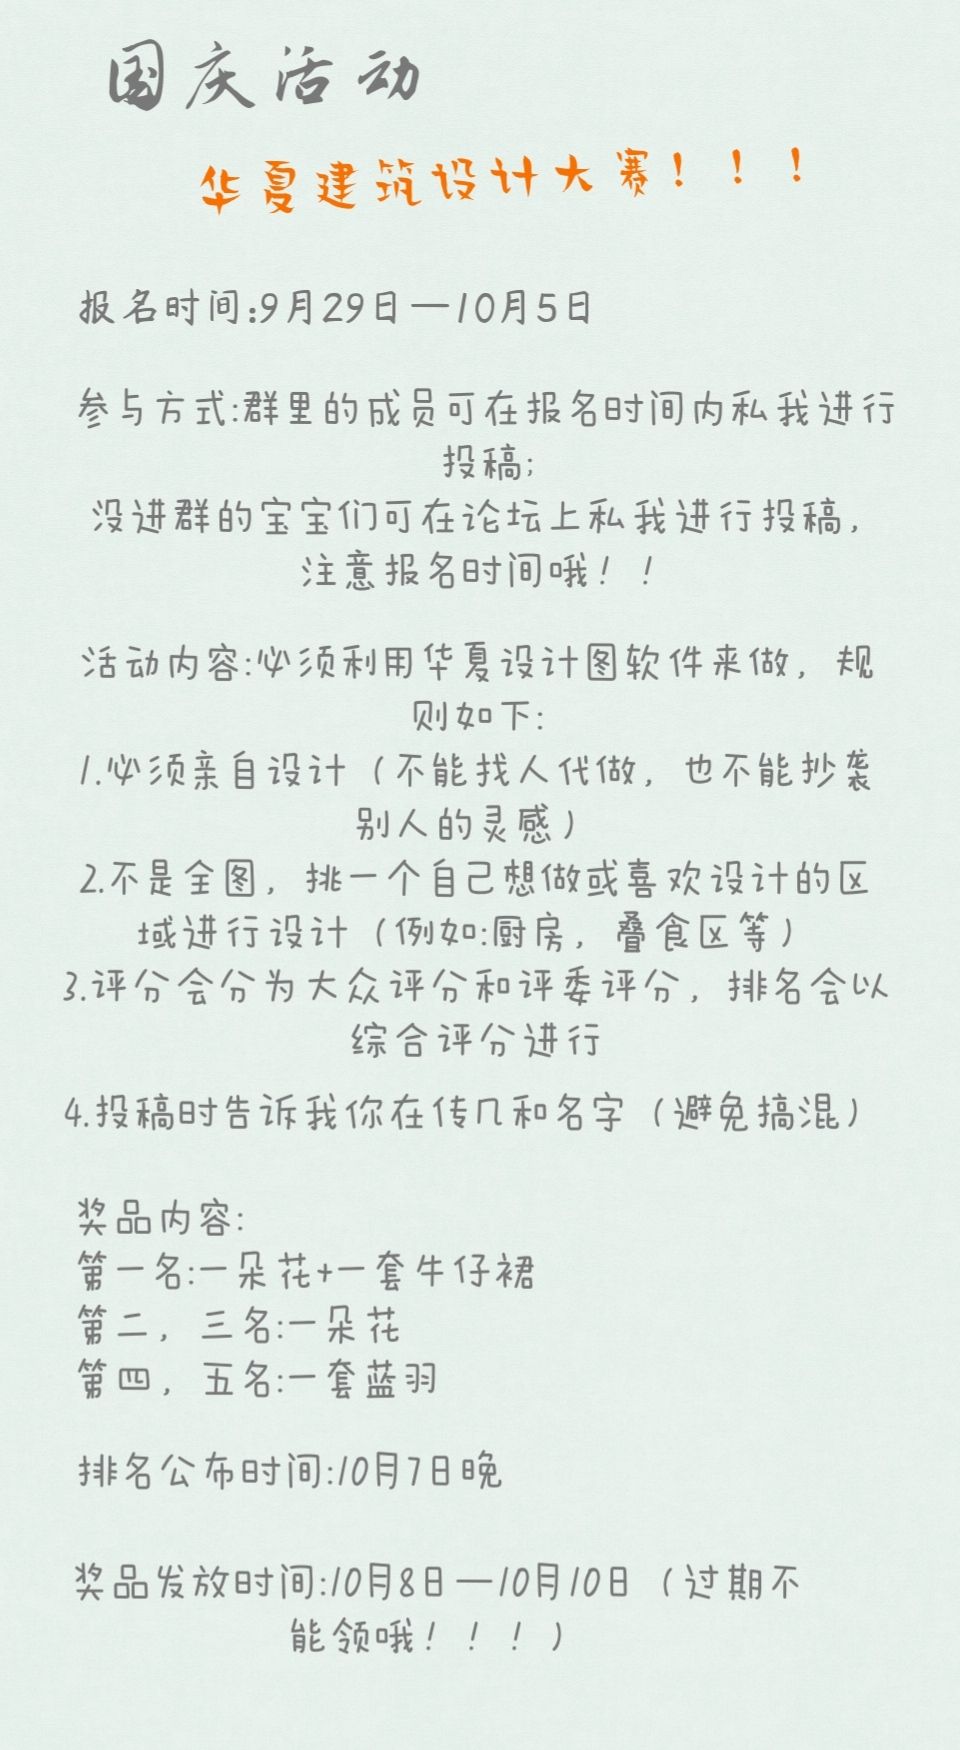 国庆活动
华夏建筑设计大赛！！！
报名时间:9月29日—10月5日
参与方式:群里的成员可在报名时间内私我进行
投稿;
没进群的宝宝们可在论坛上私我进行投稿，
注意报名时间哦！！
活动内容:必须利用华夏设计图软件来做，规
则如下:
1.必须亲自设计（不能找人代做，也不能抄袭
别人的灵感）
2.不是全图，挑一个自己想做或喜欢设计的区
域进行设计（例如:厨房，叠食区等）
3.评分会分为大众评分和评委评分，排名会以
综合评分进行
4.投稿时告诉我你在传几和名字（避免搞混）
奖品内容:
第一名:一朵花+一套牛仔裙
第二，三名:一朵花
第四，五名:一套蓝羽
排名公布时间:10月7日晚
奖品发放时间:10月8日—10月10日（过期不
能领哦！！！）